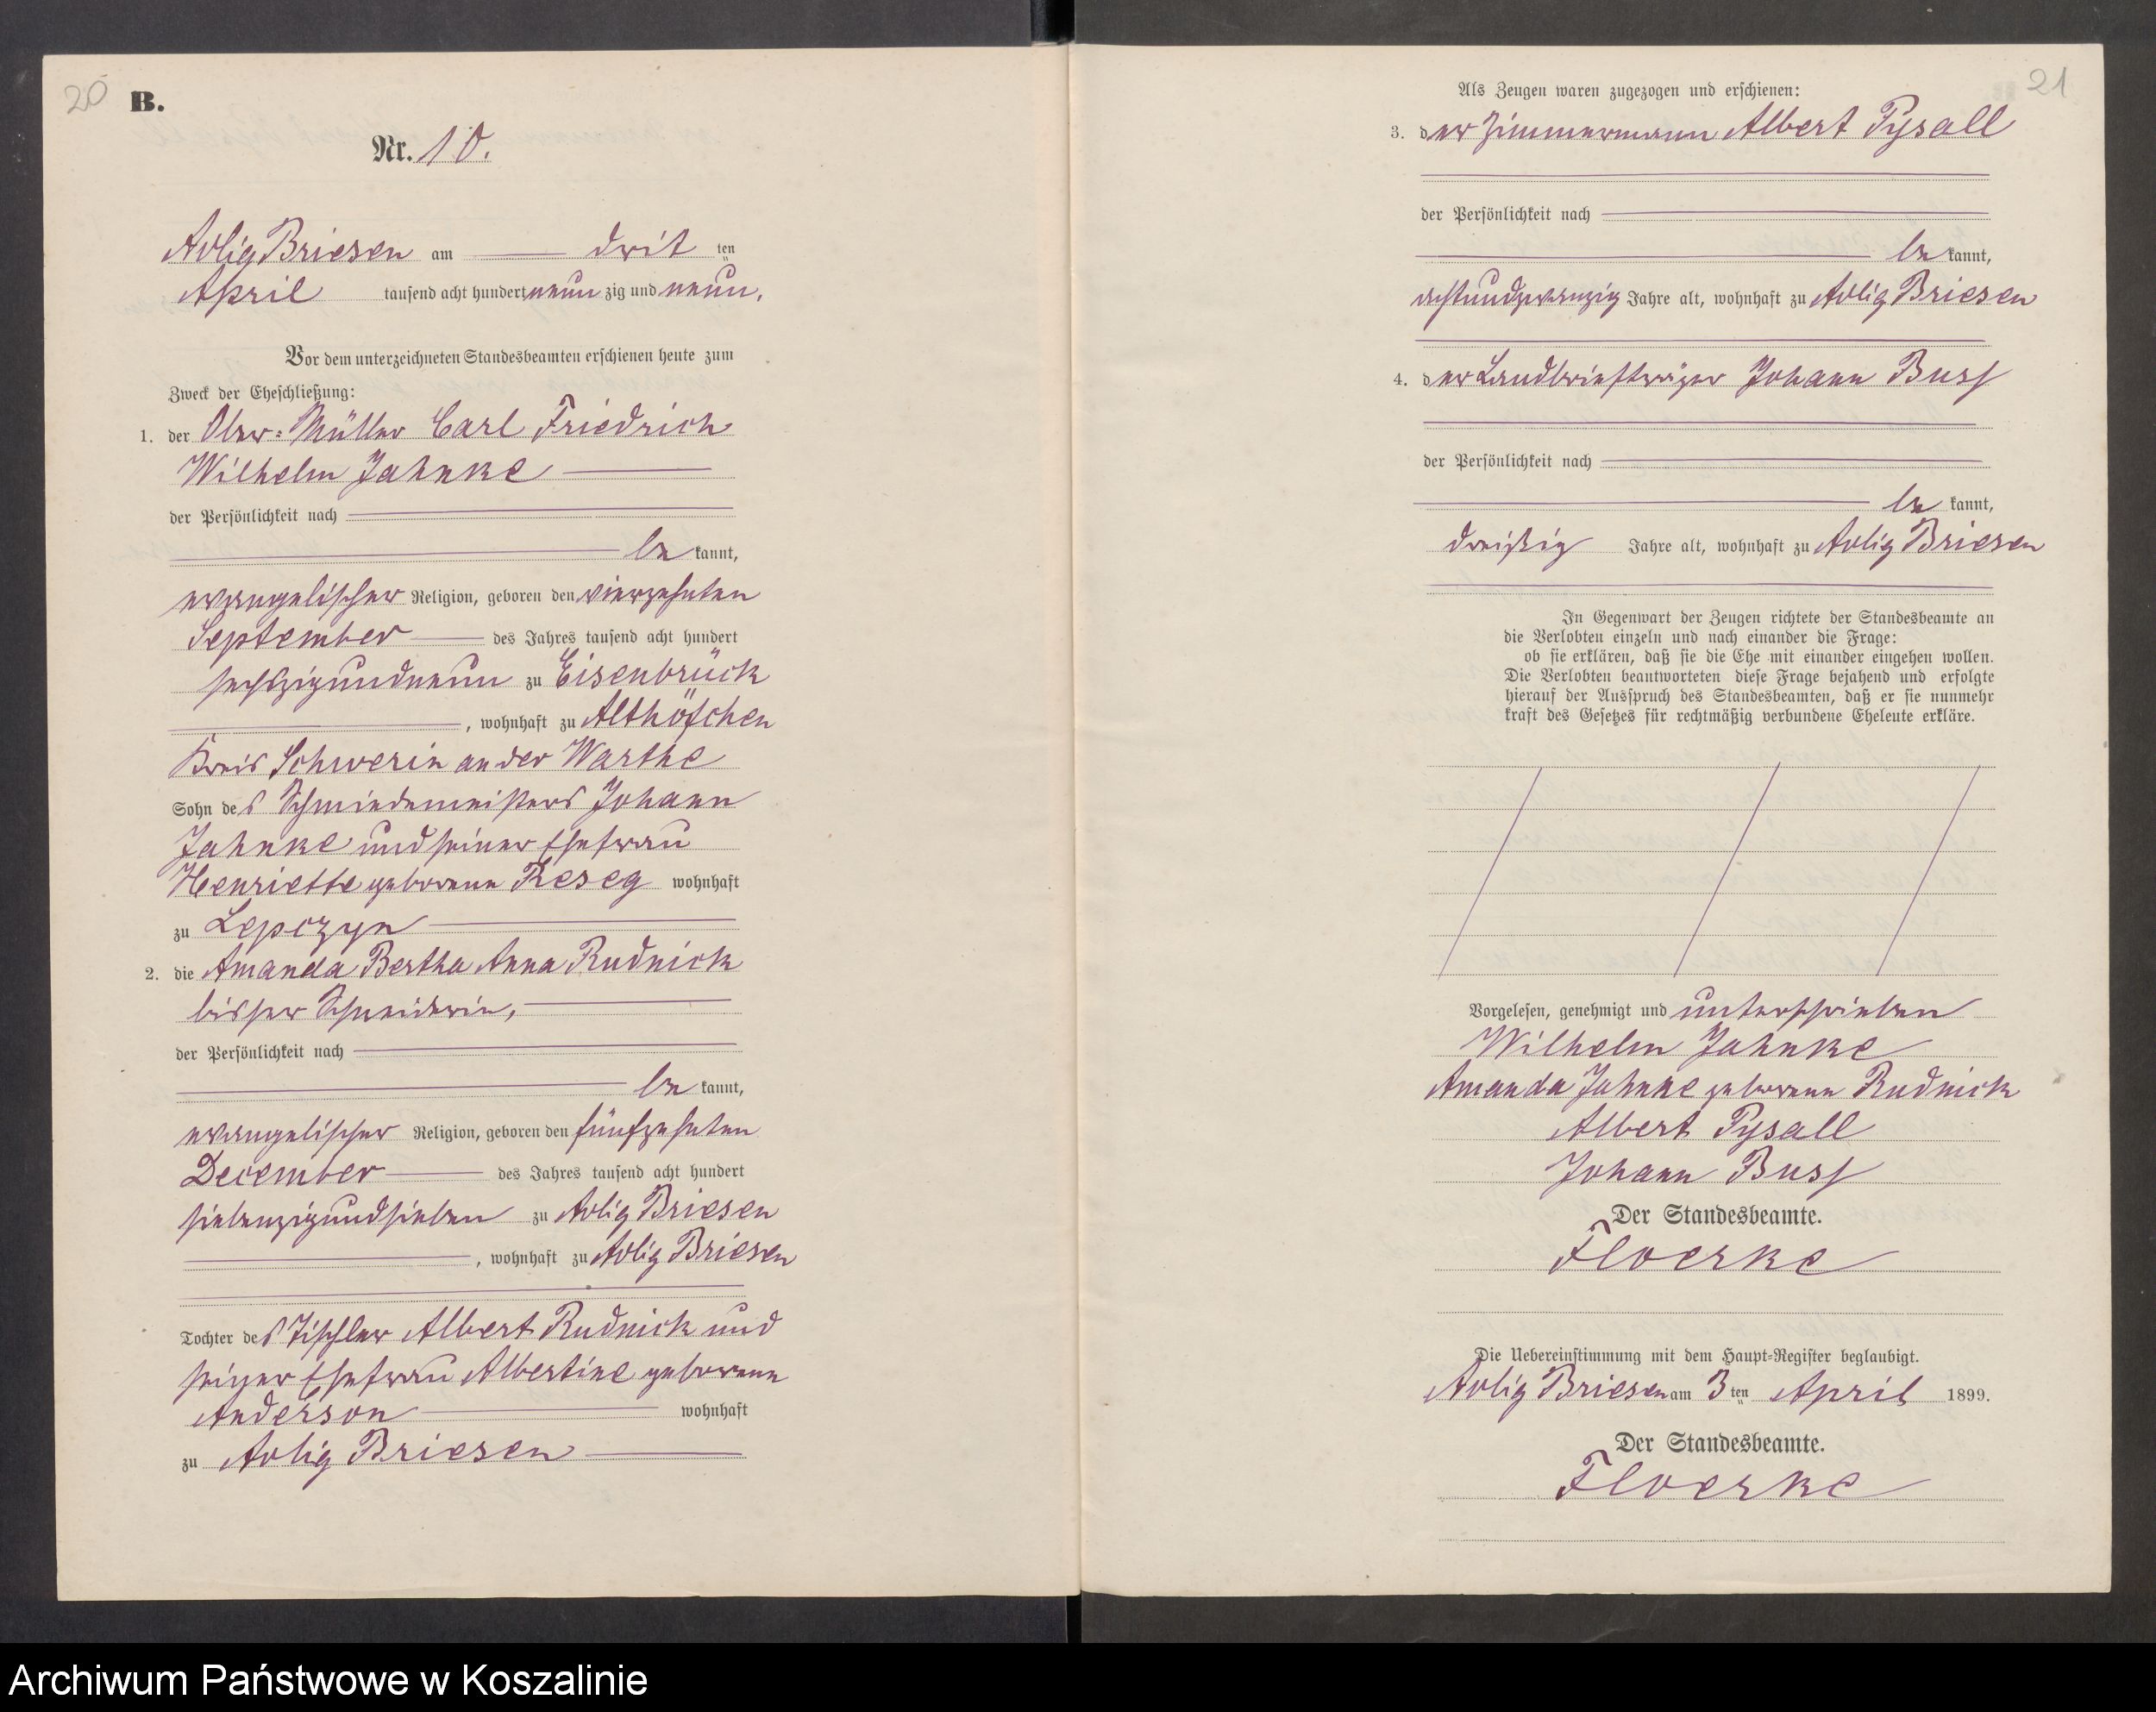 20
B.
Nr. 10.
Adlig Briesen am dritten
April tausend acht hundert neunzig und neun.
Vor dem unterzeichneten Standesbeamten erschienen heute zum
Zweck der Eheschließung:
1. der Ober-Müller Carl Friedrich
Wilhelm Jahnke
der Persönlichkeit nach
bekannt,
evangelischer Religion, geboren den vierzehnten
September des Jahres tausend acht hundert
sechszigundneun zu Eisenbrück
, wohnhaft zu Althöfchen
Kreis Schwerin an der Warthe
Sohn des Schmiedemeisters Johann
Jahnke und seiner Ehefrau
Henriette geborene Reseg wohnhaft
zu Lepczyn
2. die Amanda Bertha Anna Rudnick
bisher Schneiderin,
der Persönlichkeit nach
bekannt,
evangelischer Religion, geboren den fünfzehnten
December des Jahres tausend acht hundert
siebenzigundsieben zu Adlig Briesen
, wohnhaft zu Adlig Briesen
Tochter des Tischler Albert Rudnick und
seiner Ehefrau Albertine geborene
Anderson wohnhaft
zu Adlig Briesen
21
Als Zeugen waren zugezogen und erschienen:
3. der Zimmermann Albert Pysall
der Persönlichkeit nach
bekannt,
achtundzwanzig Jahre alt, wohnhaft zu Adlig Briesen
4. der Landbriefträger Johann Buss
der Persönlichkeit nach
bekannt,
dreißig Jahre alt, wohnhaft zu Adlig Briesen
In Gegenwart der Zeugen richtete der Standesbeamte an
die Verlobten einzeln und nach einander die Frage:
ob sie erklären, daß sie die Ehe mit einander eingehen wollen.
Die Verlobten beantworteten diese Frage bejahend und erfolgte
hierauf der Ausspruch des Standesbeamten, daß er sie nunmehr
kraft des Gesetzes für rechtmäßig verbundene Eheleute erkläre.
Vorgelesen, genehmigt und unterschrieben
Wilhelm Jahnke
Amanda Jahnke geborene Rudnick
Albert Pysall
Johann Buss
Der Standesbeamte.
Floerke
Die Uebereinstimmung mit dem Haupt-Register beglaubigt.
Adlig Briesen am 3ten April 1899.
Der Standesbeamte.
Floerke
Archiwum Państwowe w Koszalinie